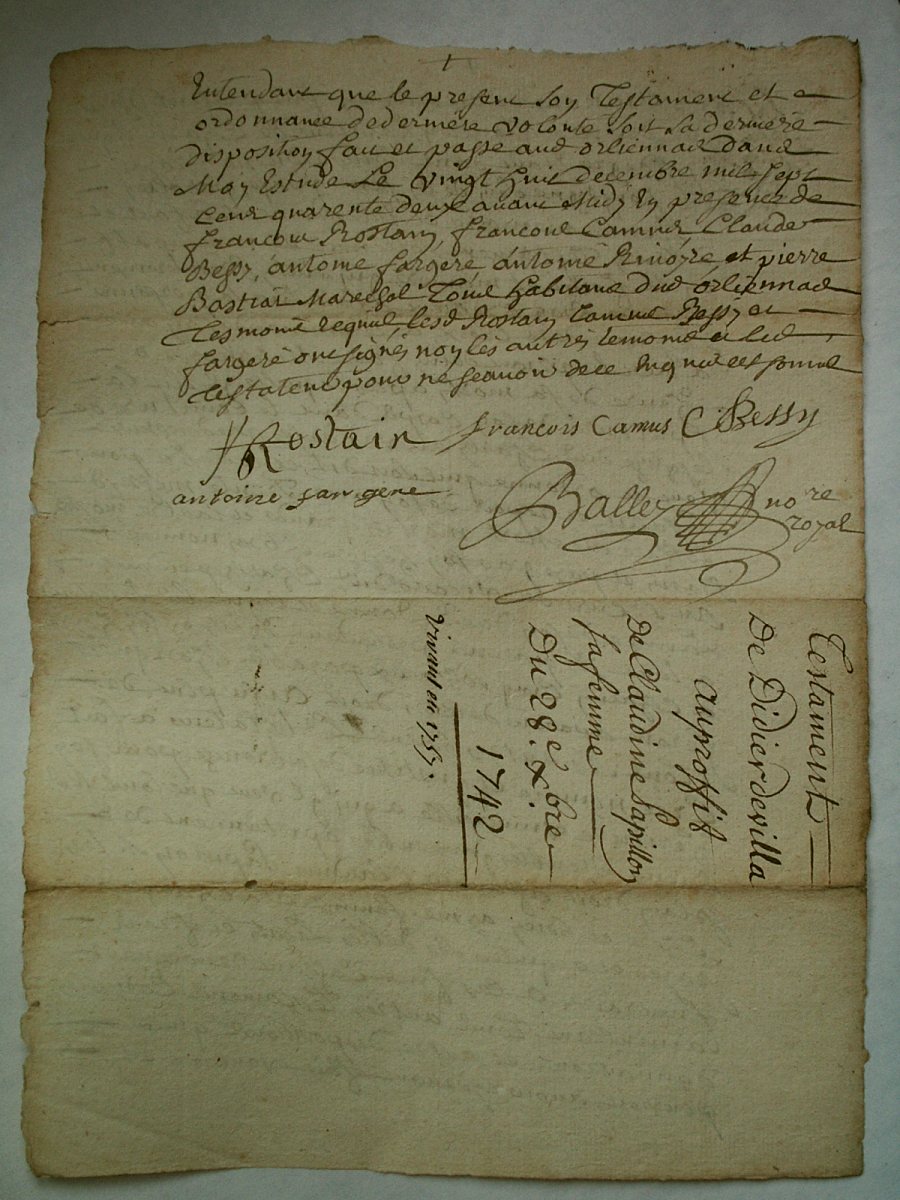 Entendant que le present son Testament et
ordonnance de derniere volonté soit sa derniere
disposition fait et passé aud orliennas dans
Mon Estude Le vingt huit decembre mil sept
Cent quarente deux avant Midy En presence de
francois Rostain, francois Camus Claude
Bessy, antoine fargere, antoine et pierre
Bastiat Marechal Tous habitans dud orliennas
Tesmoins requis, lesd Rostain Camus Bessy et
fargere ont signés non les autres temoins et led
Testateur pour ne scavoir de ce Enquis et sommé
Rostain francois Camus C Bessy
antoine fargere
Balley no re
royal
Testament
De Didier de villa
auproffit
De Claudine papillon
sa femme
Du 28.e x.bre
1742
Vivant en 1757.